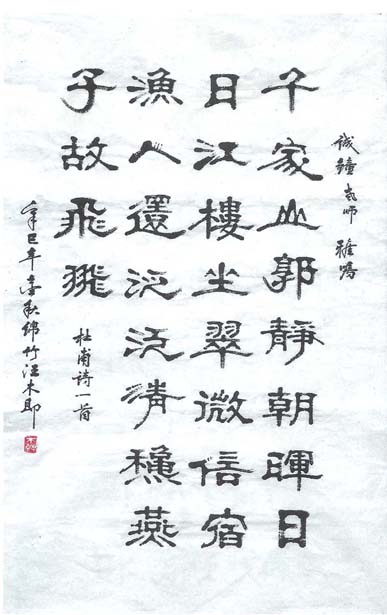 誠鐘老师 雅嘱
千家山郭靜朝暉日
日江樓坐翠微信宿
漁人還泛泛清穐燕
子故飛飛
杜甫詩一首
辛巳年季秋绵竹汪木郎